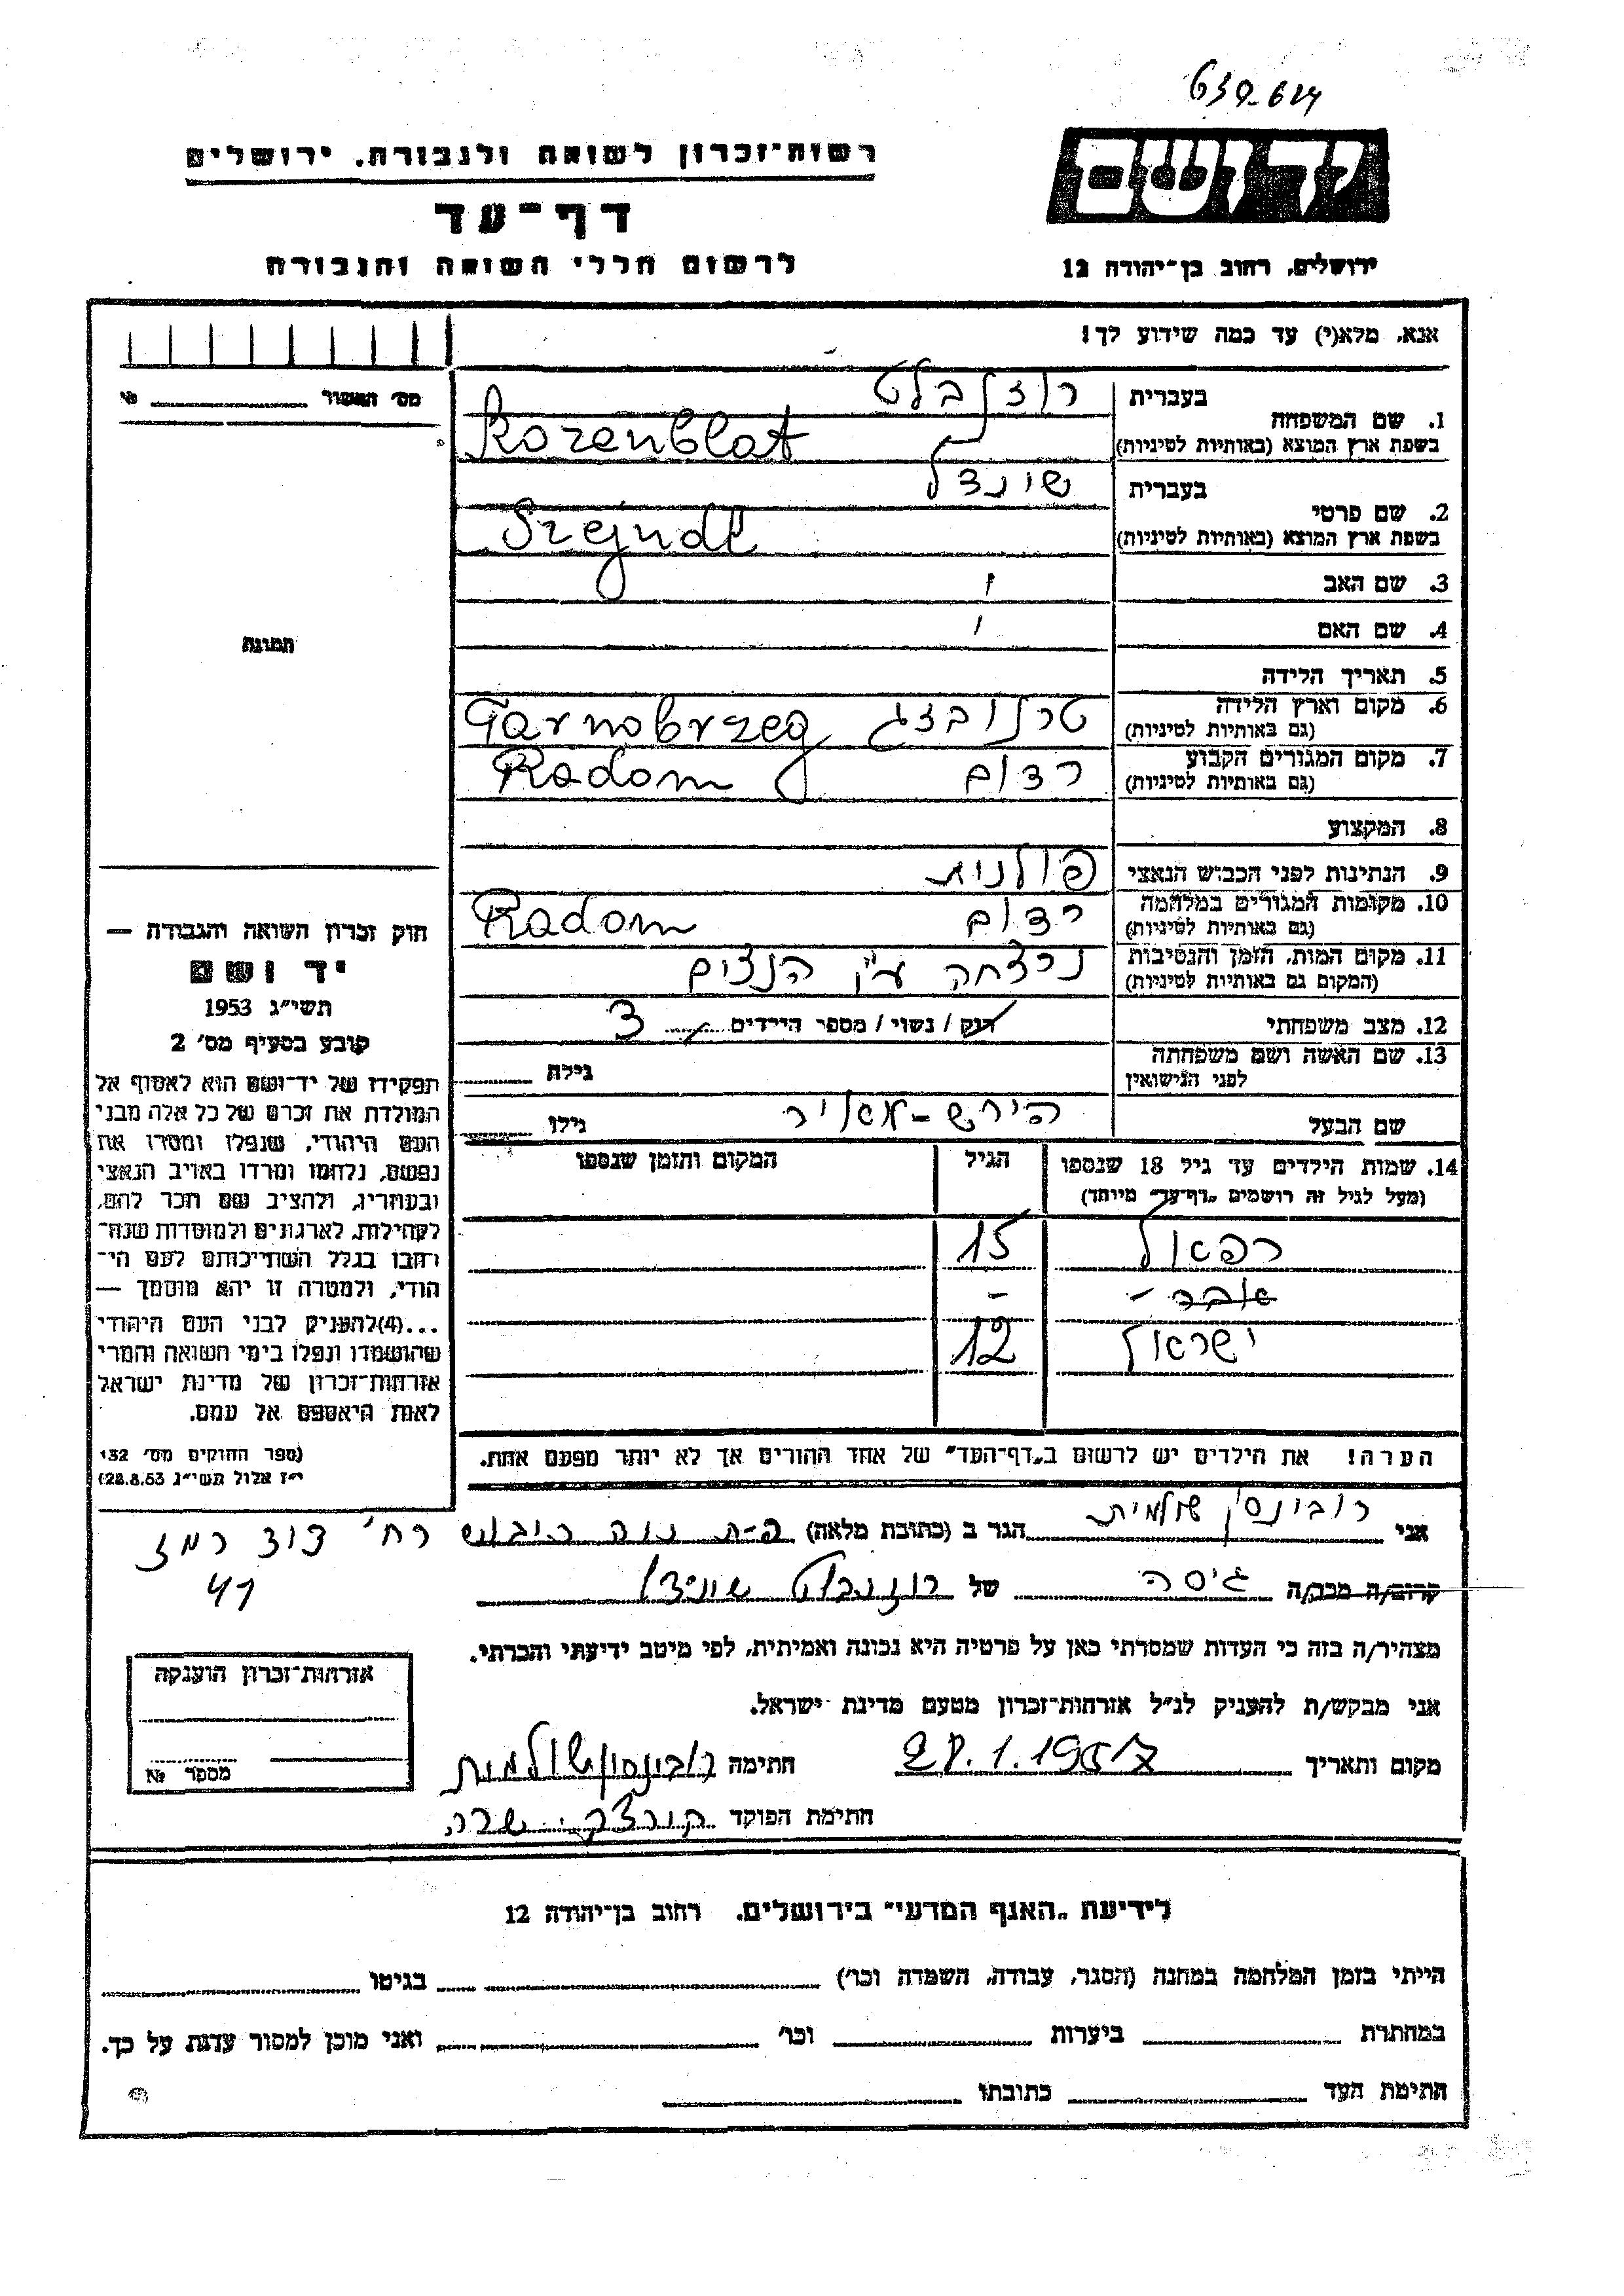 639-624
ידושם
רשות-זכרון לשואה ולגבורה, ירושלים
דף-עד
לרשום חללי השואה והגבורה
ירושלים, רחוב בן-יהודה 12
אנא, מלא(י) עד כמה שידוע לך!
מס' האשור № 
1. שם המשפחה
בעברית רוזנבלט
בשפת ארץ המוצא (באותיות לטיניות) Rozenblat
2. שם פרטי
בעברית שינדל
בשפת ארץ המוצא (באותיות לטיניות) Szejndl
3. שם האב
4. שם האם
תמונה
5. תאריך הלידה
6. מקום וארץ הלידה טרנובזג Tarnobrzeg
(גם באותיות לטיניות)
7. מקום המגורים הקבוע רדום Radom
(גם באותיות לטיניות)
8. המקצוע
9. הנתינות לפני הכבוש הנאצי פולנית
10. מקומות המגורים במלחמה רדום Radom
(גם באותיות לטיניות)
11. מקום המות, הזמן והנסיבות נרצחה ע"י הנצים
(המקום גם באותיות לטיניות)
12. מצב משפחתי רווק / נשוי / מספר הילדים 3
13. שם האשה ושם משפחתה גילה
לפני הנישואין
שם הבעל הירש-מאיר גילו
14. שמות הילדים עד גיל 18 שנספו הגיל המקום והזמן שנספו
(מעל לגיל זה רושמים „דף-עד” מיוחד)
רפאל 15
- -
ישראל 12
הערה! את הילדים יש לרשום ב„דף-העד” של אחד ההורים אך לא יותר מפעם אחת.
חוק זכרון השואה והגבורה —
יד ושם
תשי"ג 1953
קובע בסעיף מס' 2
תפקידו של יד-ושם הוא לאסוף אל
המולדת את זכרם של כל אלה מבני
העם היהודי, שנפלו ומסרו את
נפשם, נלחמו ומרדו באויב הנאצי
ובעוזריו, ולהציב שם וזכר להם,
לקהילות, לארגונים ולמוסדות שנח-
רבו בגלל השתייכותם לעם הי-
הודי, ולמטרה זו יהא מוסמך —
...(4) להעניק לבני העם היהודי
שהושמדו ונפלו בימי השואה והמרי
אזרחות-זכרון של מדינת ישראל
לאות היאספם אל עמם.
(ספר החוקים מס' 132,
י"ז אלול תשי"ג 28.8.53)
אני רובינסון שולמית הגר ב (כתובת מלאה) רח' דוד רמז
41
קרוב/ה מכר/ה גיסה של רוזנבלט שיינדל
מצהיר/ה בזה כי העדות שמסרתי כאן על פרטיה היא נכונה ואמיתית, לפי מיטב ידיעתי והכרתי.
אני מבקש/ת להעניק לנ"ל אזרחות-זכרון מטעם מדינת ישראל.
מקום ותאריך 28.1.1957 חתימה רובינסון שולמית
חתימת הפוקד שרה
אזרחות-זכרון הוענקה
מספר №
לידיעת „האגף המדעי” בירושלים, רחוב בן-יהודה 12
הייתי בזמן המלחמה במחנה (הסגר, עבודה, השמדה וכו') בגיטו
במחתרת ביערות וכו' ואני מוכן למסור עדות על כך.
חתימת העד כתובתו